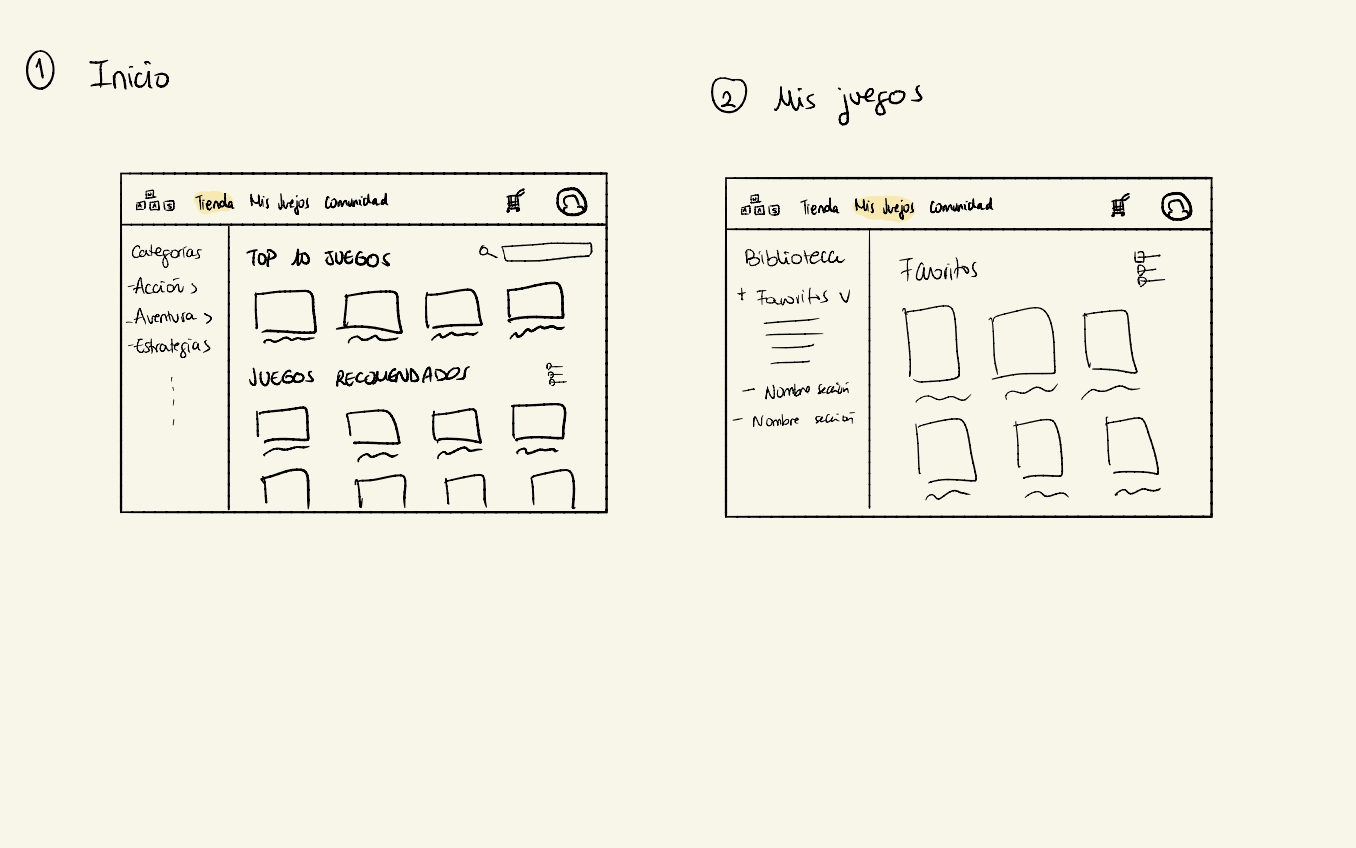 1 Inicio
Tienda Mis Juejos Comunidad
Categorías
-Acción >
-Aventura >
-Estrategias
TOP 10 JUEGOS
JUEGOS RECOMENDADOS
2 Mis juegos
Tienda Mis Juejos Comunidad
Biblioteca
+ Favoritos V
- Nombre sección
- Nombre sección
Favoritos